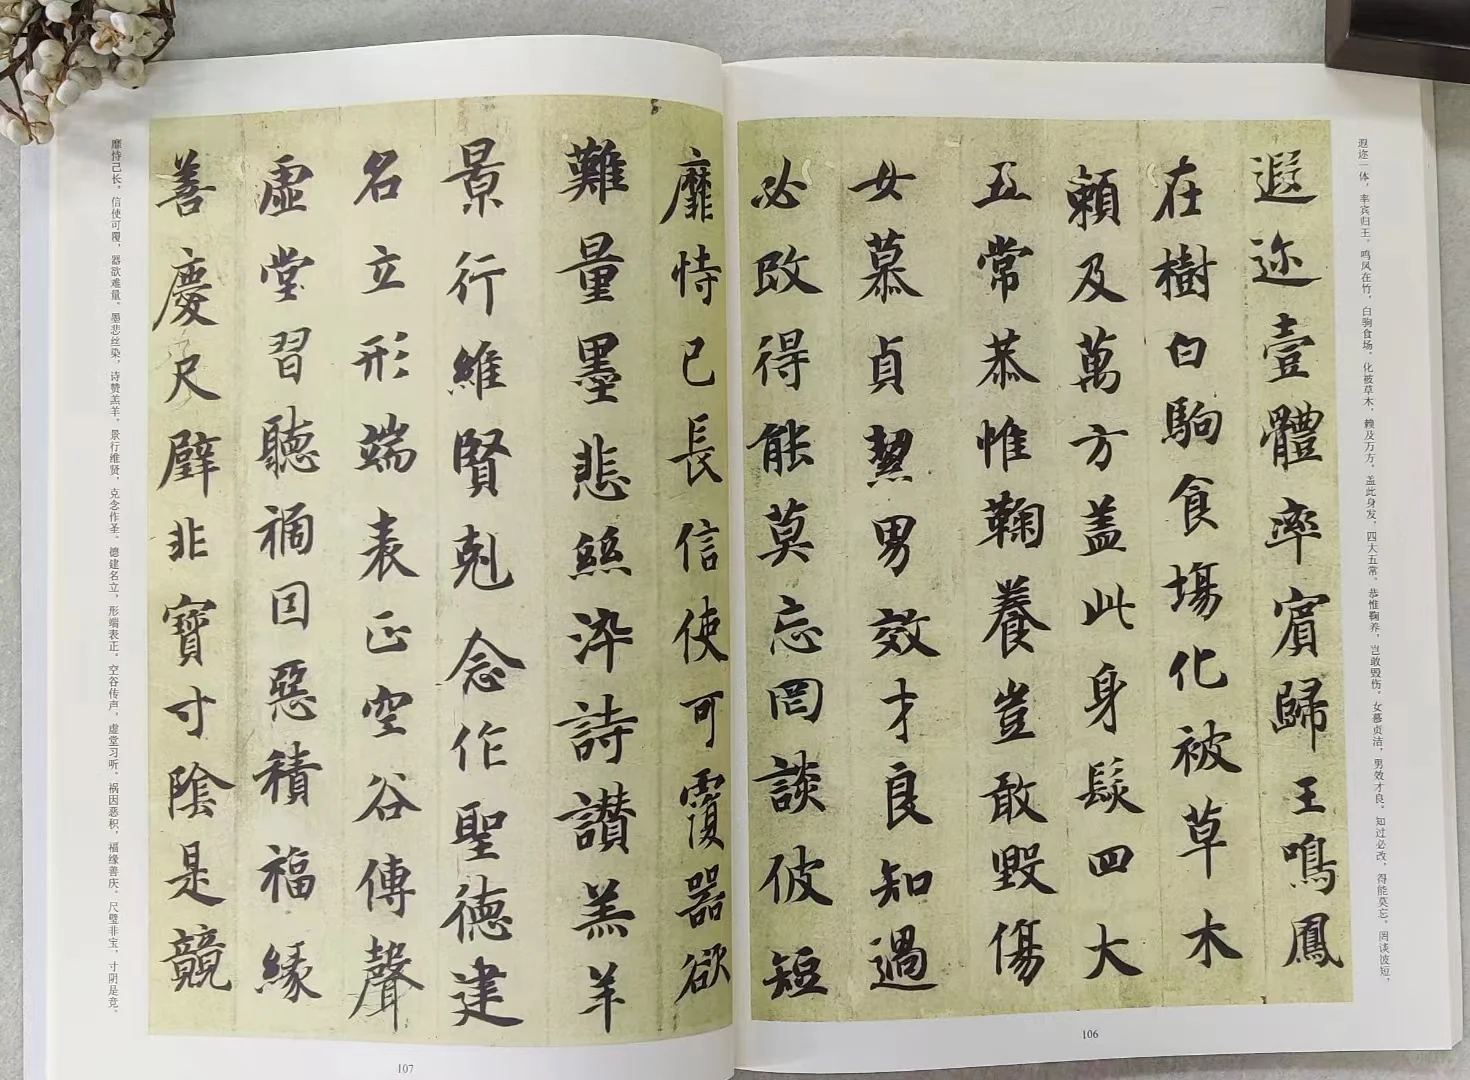 遐迩一体，率宾归王，鸣凤在竹，白驹食场，化被草木，赖及万方，盖此身发，四大五常，恭惟鞠养，岂敢毁伤，女慕贞洁，男效才良，知过必改，得能莫忘，罔谈彼短，
遐迩壹體率賓歸王鳴鳳
在樹白駒食場化被草木
賴及萬方盖此身髮四大
五常恭惟鞠養豈敢毀傷
女慕貞絜男效才良知過
必改得能莫忘罔談彼短
106
靡恃己長信使可覆器欲
難量墨悲絲染詩讃羔羊
景行維賢剋念作聖德建
名立形端表正空谷傳聲
虛堂習聽禍因惡積福緣
善慶尺璧非寶寸陰是競
靡恃己长，信使可覆，器欲难量，墨悲丝染，诗赞羔羊，景行维贤，克念作圣，德建名立，形端表正，空谷传声，虚堂习听，祸因恶积，福缘善庆，尺璧非宝，寸阴是竞，
107